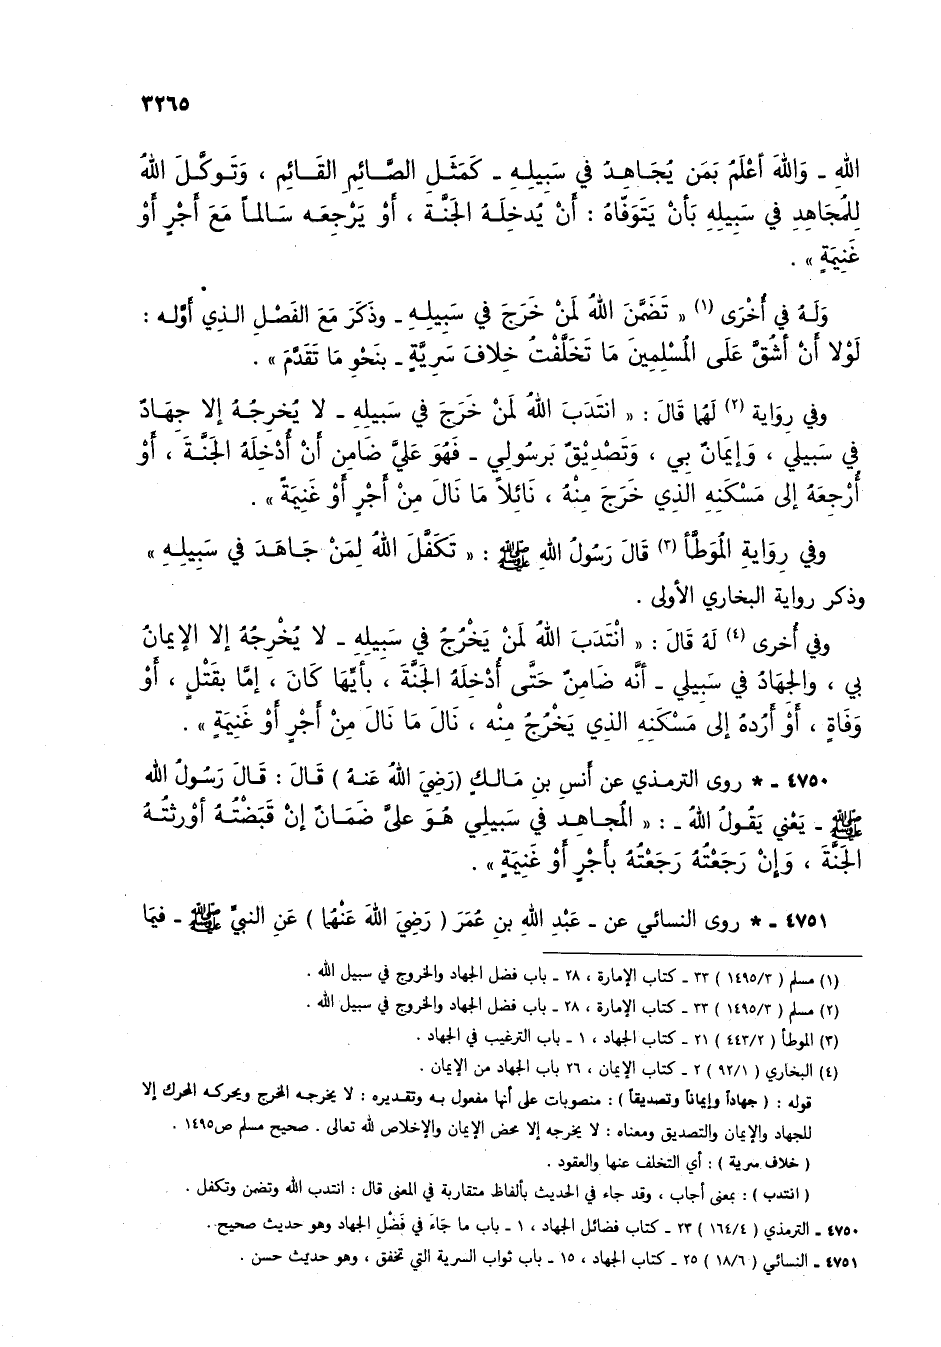 ٣٢٦٥
اللهِ ـ وَاللهُ أَعْلَمُ بَمَن يُجَاهِدُ في سَبِيلِهِ ـ كَمَثَلِ الصَّائِمِ القَائِمِ ، وَتَوكَّلَ اللهُ
لِلمُجَاهِدِ في سَبِيلِهِ بَأنْ يَتَوَفَّاهُ : أَنْ يُدخِلَهُ الجَنَّة ، أَوْ يَرْجِعَه سَالماً مَعَ أَجْرٍ أَوْ
غَنِيمَةٍ » .
وَلَهُ في أُخْرَى (١) « تَضَمَّنَ اللهُ لَمنْ خَرَجَ في سَبِيلِهِ ـ وذَكَرَ مَعَ الفَصْلِ الذي أوَّله :
لَوْلا أَنْ أَشُقَّ عَلَى المُسْلِمِينَ مَا تَخَلَّفْتُ خِلافَ سَرِيَّةٍ ـ بنَحْوِ مَا تَقَدَّمَ » .
وفي روايةٍ (٢) لَهُما قَالَ : « انتَدَبَ اللهُ لَمنْ خَرَجَ في سَبيلهِ ـ لا يُخرِجُهُ إلا جِهَادٌ
في سَبيلي ، وَإيمَانٌ بي ، وَتَصْدِيْقٌ بَرسُولي ـ فَهُوَ عَليَّ ضَامِن أَنْ أُدْخِلَهُ الجَنَّةَ ، أَوْ
أُرْجِعَهُ إلى مَسْكَنِهِ الذي خَرَجَ مِنْهُ ، نَائِلاً مَا نَالَ مِنْ أَجْرٍ أَوْ غَنِيمَةً » .
وفي رِوَايةِ المُوَطَّأ (٣) قَالَ رَسُولُ اللهِ ﷺ : « تَكَفَّلَ اللهُ لِمَنْ جَاهَدَ في سَبِيلِهِ »
وذكر رواية البخاري الأولى .
وفي أُخرى (٤) لَهُ قَالَ : « انْتَدَبَ اللهُ لَمنْ يَخْرُجُ في سَبيلِهِ ـ لا يُخْرِجُهُ إلا الإيمانُ
بي ، والجِهَادُ في سَبِيلي ـ أنَّه ضَامِنٌ حَتَّى أُدْخِلَهُ الجَنَّةَ ، بأيِّهَا كَانَ ، إمَّا بقَتْلٍ ، أَوْ
وَفَاةٍ ، أَوْ أَرُدهُ إلى مَسْكَنِهِ الذي يَخْرُجُ مِنْه ، نَالَ مَا نَالَ مِنْ أَجْرٍ أَوْ غَنِيمَةٍ » .
٤٧٥٠ ـ * روى الترمذي عن أنسِ بنِ مَالكٍ (رَضِيَ اللهُ عَنهُ ) قَالَ : قَالَ رَسُولُ الله
ﷺ ـ يَعْني يَقُولُ اللهُ ـ : « المُجاهِد في سَبيلي هُوَ عَليَّ ضَمَانٌ إنْ قَبَضْتُهُ أَوْرثتُهُ
الجَنَّةَ ، وَإنْ رَجَعْتُهُ رَجَعْتُهُ بأَجْرٍ أَوْ غَنِيمَةٍ » .
٤٧٥١ ـ * روى النسائي عن ـ عَبْدِ اللهِ بنِ عُمَرَ ( رَضِيَ اللهُ عَنْهُما ) عَنِ النبيِّ ﷺ ـ فيمَا
(١) مسلم ( ١٤٩٥/٣ ) ٣٣ ـ كتاب الإمارة ، ٢٨ ـ باب فضل الجهاد والخروج في سبيل الله .
(٢) مسلم ( ١٤٩٥/٣ ) ٣٣ ـ كتاب الإمارة ، ٢٨ ـ باب فضل الجهاد والخروج في سبيل الله .
(٣) الموطأ ( ٤٤٣/٢ ) ٢١ ـ كتاب الجهاد ، ١ ـ باب الترغيب في الجهاد .
(٤) البخاري ( ٩٢/١ ) ٢ ـ كتاب الإيمان ، ٢٦ باب الجهاد من الإيمان .
قوله : ( جهاداً وإيماناً وتصديقاً ) : منصوبات على أنها مفعول به وتقديره : لا يخرجه المخرج ويحركه المحرك إلا
للجهاد والإيمان والتصديق ومعناه : لا يخرجه إلا محض الإيمان والإخلاص لله تعالى . صحيح مسلم ص١٤٩٥ .
( خلاف سرية ) : أي التخلف عنها والعقود .
( انتدب ) : بمعنى أجاب ، وقد جاء في الحديث بألفاظ متقاربة في المعنى قال : انتدب الله وتضمن وتكفل .
٤٧٥٠ ـ الترمذي ( ١٦٤/٤ ) ٢٣ ـ كتاب فضائل الجهاد ، ١ ـ باب ما جَاءَ في فَضْلِ الجهاد وهو حديث صحيح .
٤٧٥١ ـ النسائي ( ١٨/٦ ) ٢٥ ـ كتاب الجهاد ، ١٥ ـ باب ثواب السرية التي تخفق ، وهو حديث حسن .